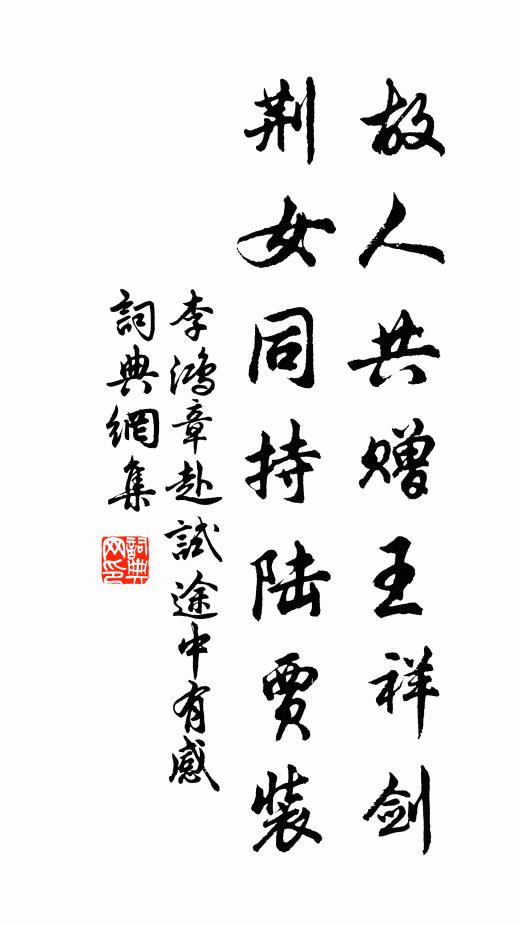 故人共赠王祥剑
荆女同持陆贾装
李鸿章赴試途中有感
詞典網集
詞典网印